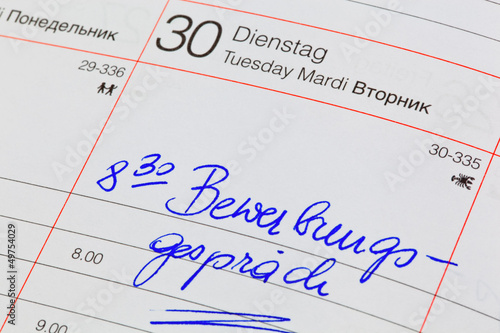 i Понедельник
30 Dienstag
Tuesday Mardi Вторник
29-336
30-335
8 30 Bewerbungs-
gespräch
8.00
9.00
Adobe Stock | #49754029